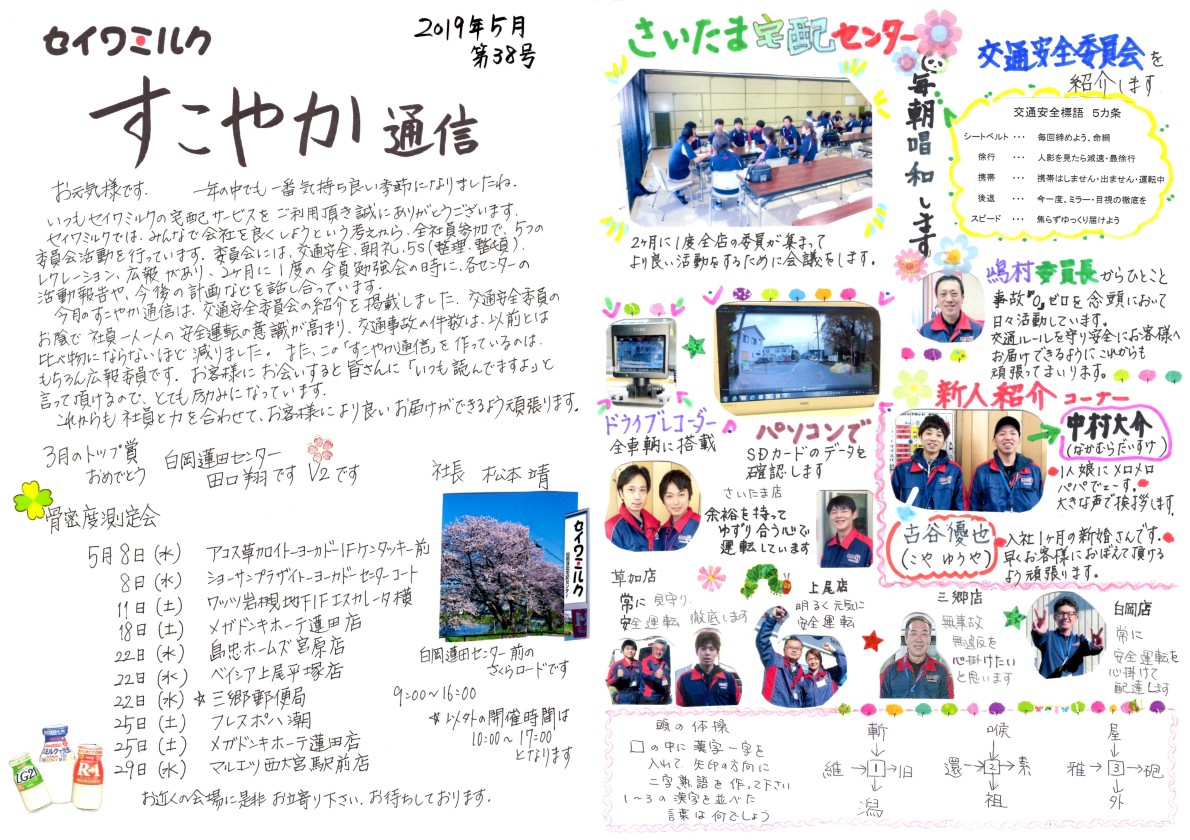 セイワミルク
2019年5月
第38号
すこやか通信
お元気様です。 一年の中でも一番気持ち良い季節になりましたね。
いつもセイワミルクの宅配サービスをご利用頂き誠にありがとうございます。
セイワミルクでは、みんなで会社を良くしようという考えから、全社員参加で、5つの
委員会活動を行っています。委員会には、交通安全、朝礼、5S(整理・整頓)、
レクレーション、広報があり、2ヶ月に1度の全員勉強会の時に、各センターの
活動報告や、今後の計画などを話し合っています。
今月のすこやか通信は、交通安全委員会の紹介を掲載しました。交通安全委員の
お陰で社員一人一人の安全運転の意識が高まり、交通事故の件数は、以前とは
比べ物にならないほど減りました。また、この「すこやか通信」を作っているのは、
もちろん広報委員です。お客様にお会いすると皆さんに「いつも読んでますよ」と
言って頂けるので、とても励みになっています。
これからも社員と力を合わせて、お客様により良いお届けができるよう頑張ります。
3月のトップ賞
おめでとう
白岡蓮田センター
田口翔です V2です
社長 松本 靖
骨密度測定会
5月8日(水) アコス草加イトーヨーカドー1Fケンタッキー前
8日(水) ショーサンプラザイトーヨーカドーセンターコート
11日(土) ワッツ岩槻地F1Fエスカレータ横
18日(土) メガドンキホーテ蓮田店
22日(水) 島忠ホームズ宮原店
22日(水) ベイシア上尾平塚店
22日(水) ☆三郷郵便局
25日(土) フレスポ八潮
25日(土) メガドンキホーテ蓮田店
29日(水) マルエツ西大宮駅前店
セイワミルク
白岡蓮田センター前の
さくらロードです
9:00〜16:00
☆以外の開催時間は
10:00〜17:00
となります
LG21
R-1
お近くの会場に是非お立寄り下さい。お待ちしております。
さいたま宅配センター
2ヶ月に1度全店の委員が集まって
より良い活動をするために会議をします。
毎朝唱和します
交通安全委員会を
紹介します
交通安全標語 5カ条
シートベルト ・・・ 毎回締めよう、命綱
徐行 ・・・ 人影を見たら減速・最徐行
携帯 ・・・ 携帯はしません・出ません・運転中
後退 ・・・ 今一度、ミラー・目視の徹底を
スピード ・・・ 焦らずゆっくり届けよう
嶋村委員長からひとこと
事故"0"ゼロを念頭において
日々活動しています。
交通ルールを守り安全にお客様へ
お届けできるようにこれからも
頑張ってまいります。
ドライブレコーダー
全車輌に搭載
パソコンで
SDカードのデータを
確認します
さいたま店
余裕を持って
ゆずり合う心で
運転しています
新人紹介コーナー
中村大介
(なかむらだいすけ)
1人娘にメロメロ
パパでーす。
大きな声で挨拶します。
古谷優也
(こや ゆうや)
入社1ヶ月の新婚さんです。
早くお客様におぼえて頂ける
よう頑張ります。
草加店
常に見守り、
安全運転徹底します
上尾店
明るく元気に
安全運転
三郷店
無事故
無違反を
心掛けたい
と思います
白岡店
常に
安全運転を
心掛けて
配達します
頭の体操
□の中に漢字一字を
入れて矢印の方向に
二字熟語を作って下さい
1〜3の漢字を並べた
言葉は何でしょう
斬
↓
維→1→旧
↓
潟
喉
↓
還→2→素
↓
祖
屋
↓
雅→3→砲
↓
外